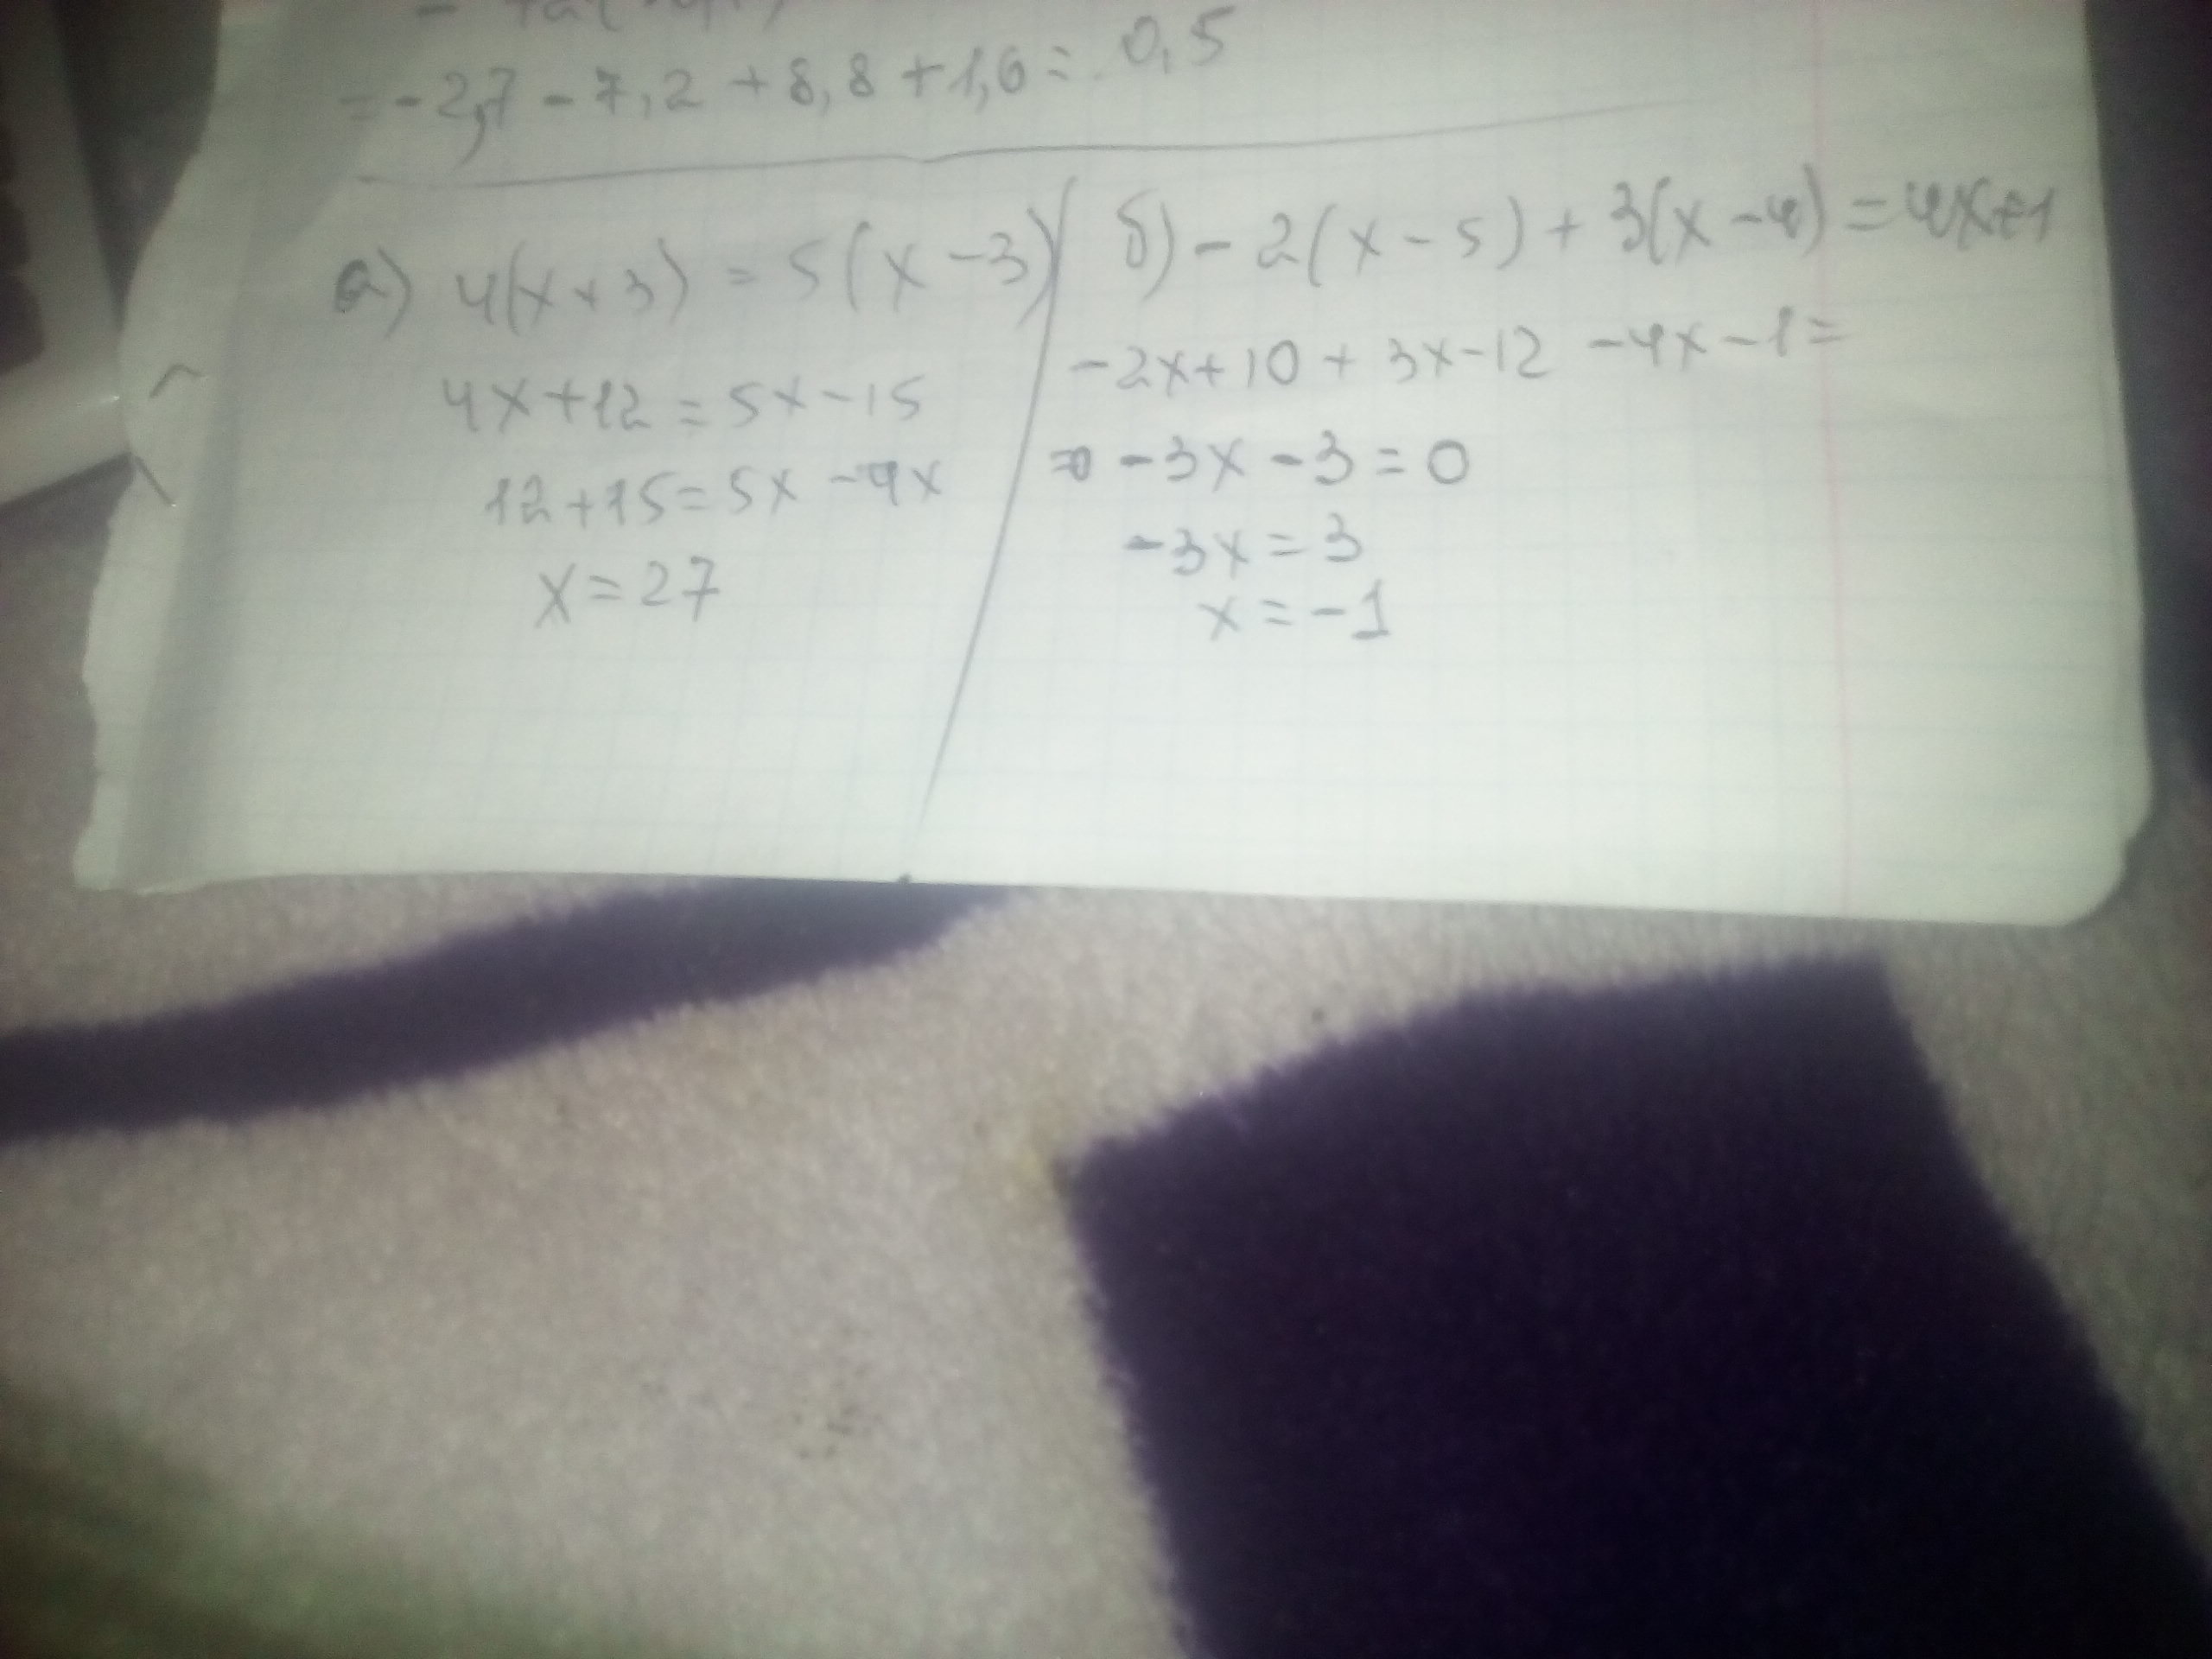 = -2,7 - 7,2 + 8,8 + 1,6 = 0,5
а) 4(x+3) = 5(x-3)
4x+12 = 5x-15
12+15=5x-4x
x=27
б) -2(x-5)+3(x-4)=4x+1
-2x+10+3x-12-4x-1=
=0 -3x-3=0
-3x=3
x=-1